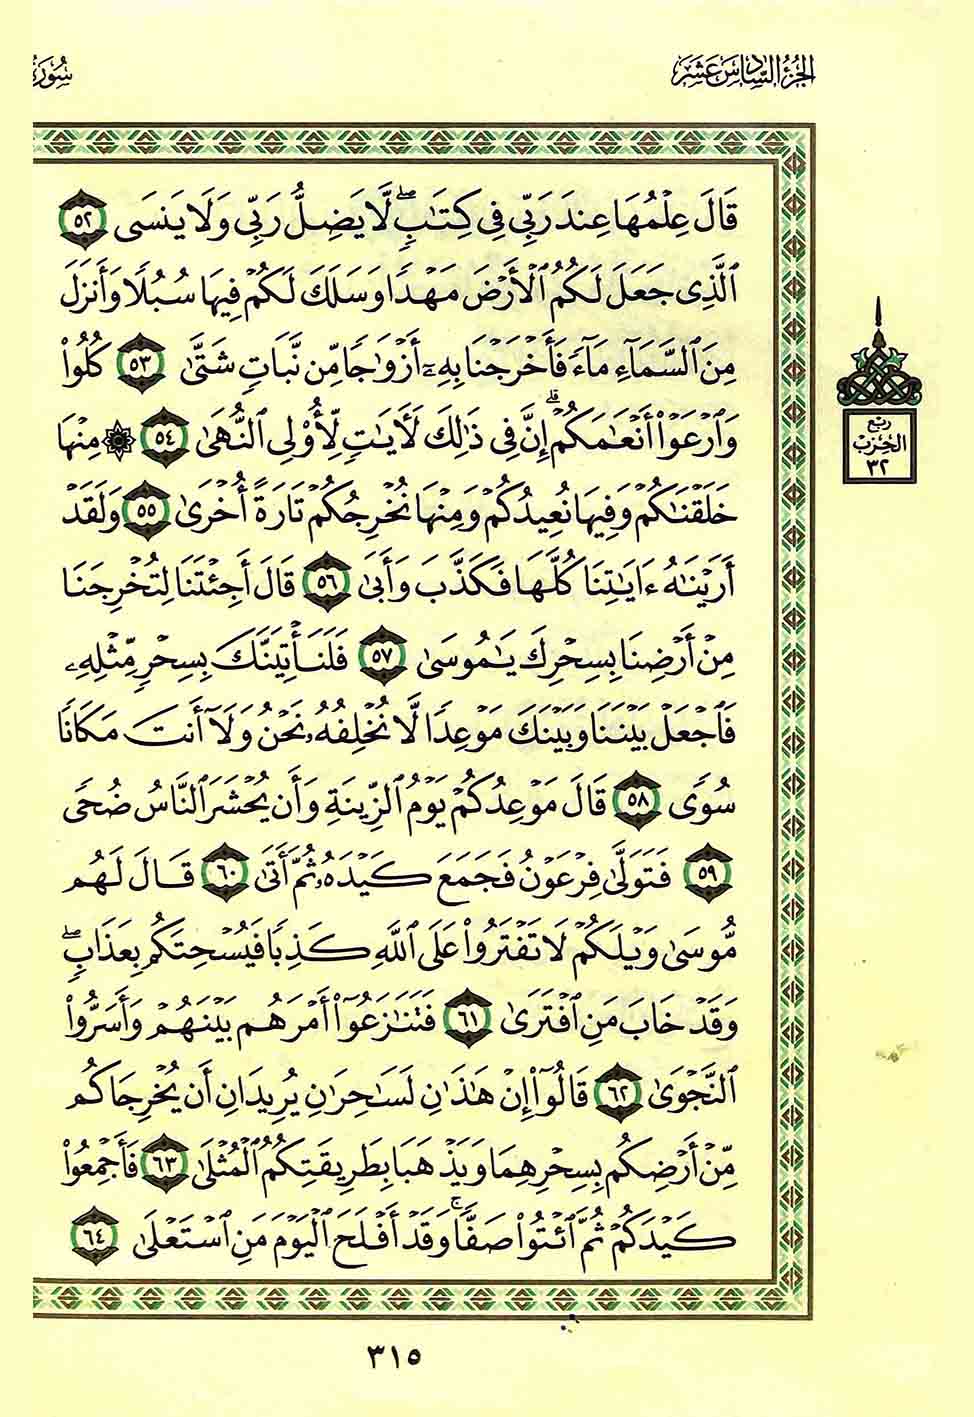 الجزء السادس عشر
سورة
قَالَ عِلْمُهَا عِندَ رَبِّي فِي كِتَٰبٍۖ لَّا يَضِلُّ رَبِّي وَلَا يَنسَى ٥٢
ٱلَّذِى جَعَلَ لَكُمُ ٱلْأَرْضَ مَهْدًا وَسَلَكَ لَكُمْ فِيهَا سُبُلًا وَأَنزَلَ
مِنَ ٱلسَّمَآءِ مَآءً فَأَخْرَجْنَا بِهِۦٓ أَزْوَٰجًا مِّن نَّبَاتٍ شَتَّىٰ ٥٣ كُلُوا۟
وَٱرْعَوْا۟ أَنْعَٰمَكُمْۗ إِنَّ فِى ذَٰلِكَ لَءَايَٰتٍ لِّأُو۟لِى ٱلنُّهَىٰ ٥٤ ۞ مِنْهَا
خَلَقْنَٰكُمْ وَفِيهَا نُعِيدُكُمْ وَمِنْهَا نُخْرِجُكُمْ تَارَةً أُخْرَىٰ ٥٥ وَلَقَدْ
أَرَيْنَٰهُ ءَايَٰتِنَا كُلَّهَا فَكَذَّبَ وَأَبَىٰ ٥٦ قَالَ أَجِئْتَنَا لِتُخْرِجَنَا
مِنْ أَرْضِنَا بِسِحْرِكَ يَٰمُوسَىٰ ٥٧ فَلَنَأْتِيَنَّكَ بِسِحْرٍ مِّثْلِهِۦ
فَٱجْعَلْ بَيْنَنَا وَبَيْنَكَ مَوْعِدًا لَّا نُخْلِفُهُۥ نَحْنُ وَلَآ أَنتَ مَكَانًا
سُوًى ٥٨ قَالَ مَوْعِدُكُمْ يَوْمُ ٱلزِّينَةِ وَأَن يُحْشَرَ ٱلنَّاسُ ضُحًى
٥٩ فَتَوَلَّىٰ فِرْعَوْنُ فَجَمَعَ كَيْدَهُۥ ثُمَّ أَتَىٰ ٦٠ قَالَ لَهُم
مُّوسَىٰ وَيْلَكُمْ لَا تَفْتَرُوا۟ عَلَى ٱللَّهِ كَذِبًا فَيُسْحِتَكُم بِعَذَابٍۖ
وَقَدْ خَابَ مَنِ ٱفْتَرَىٰ ٦١ فَتَنَٰزَعُوٓا۟ أَمْرَهُم بَيْنَهُمْ وَأَسَرُّوا۟
ٱلنَّجْوَىٰ ٦٢ قَالُوٓا۟ إِنْ هَٰذَٰنِ لَسَٰحِرَٰنِ يُرِيدَانِ أَن يُخْرِجَاكُم
مِّنْ أَرْضِكُم بِسِحْرِهِمَا وَيَذْهَبَا بِطَرِيقَتِكُمُ ٱلْمُثْلَىٰ ٦٣ فَأَجْمِعُوا۟
كَيْدَكُمْ ثُمَّ ٱئْتُوا۟ صَفًّاۚ وَقَدْ أَفْلَحَ ٱلْيَوْمَ مَنِ ٱسْتَعْلَىٰ ٦٤
ربع
الحزب
٣٢
٣١٥